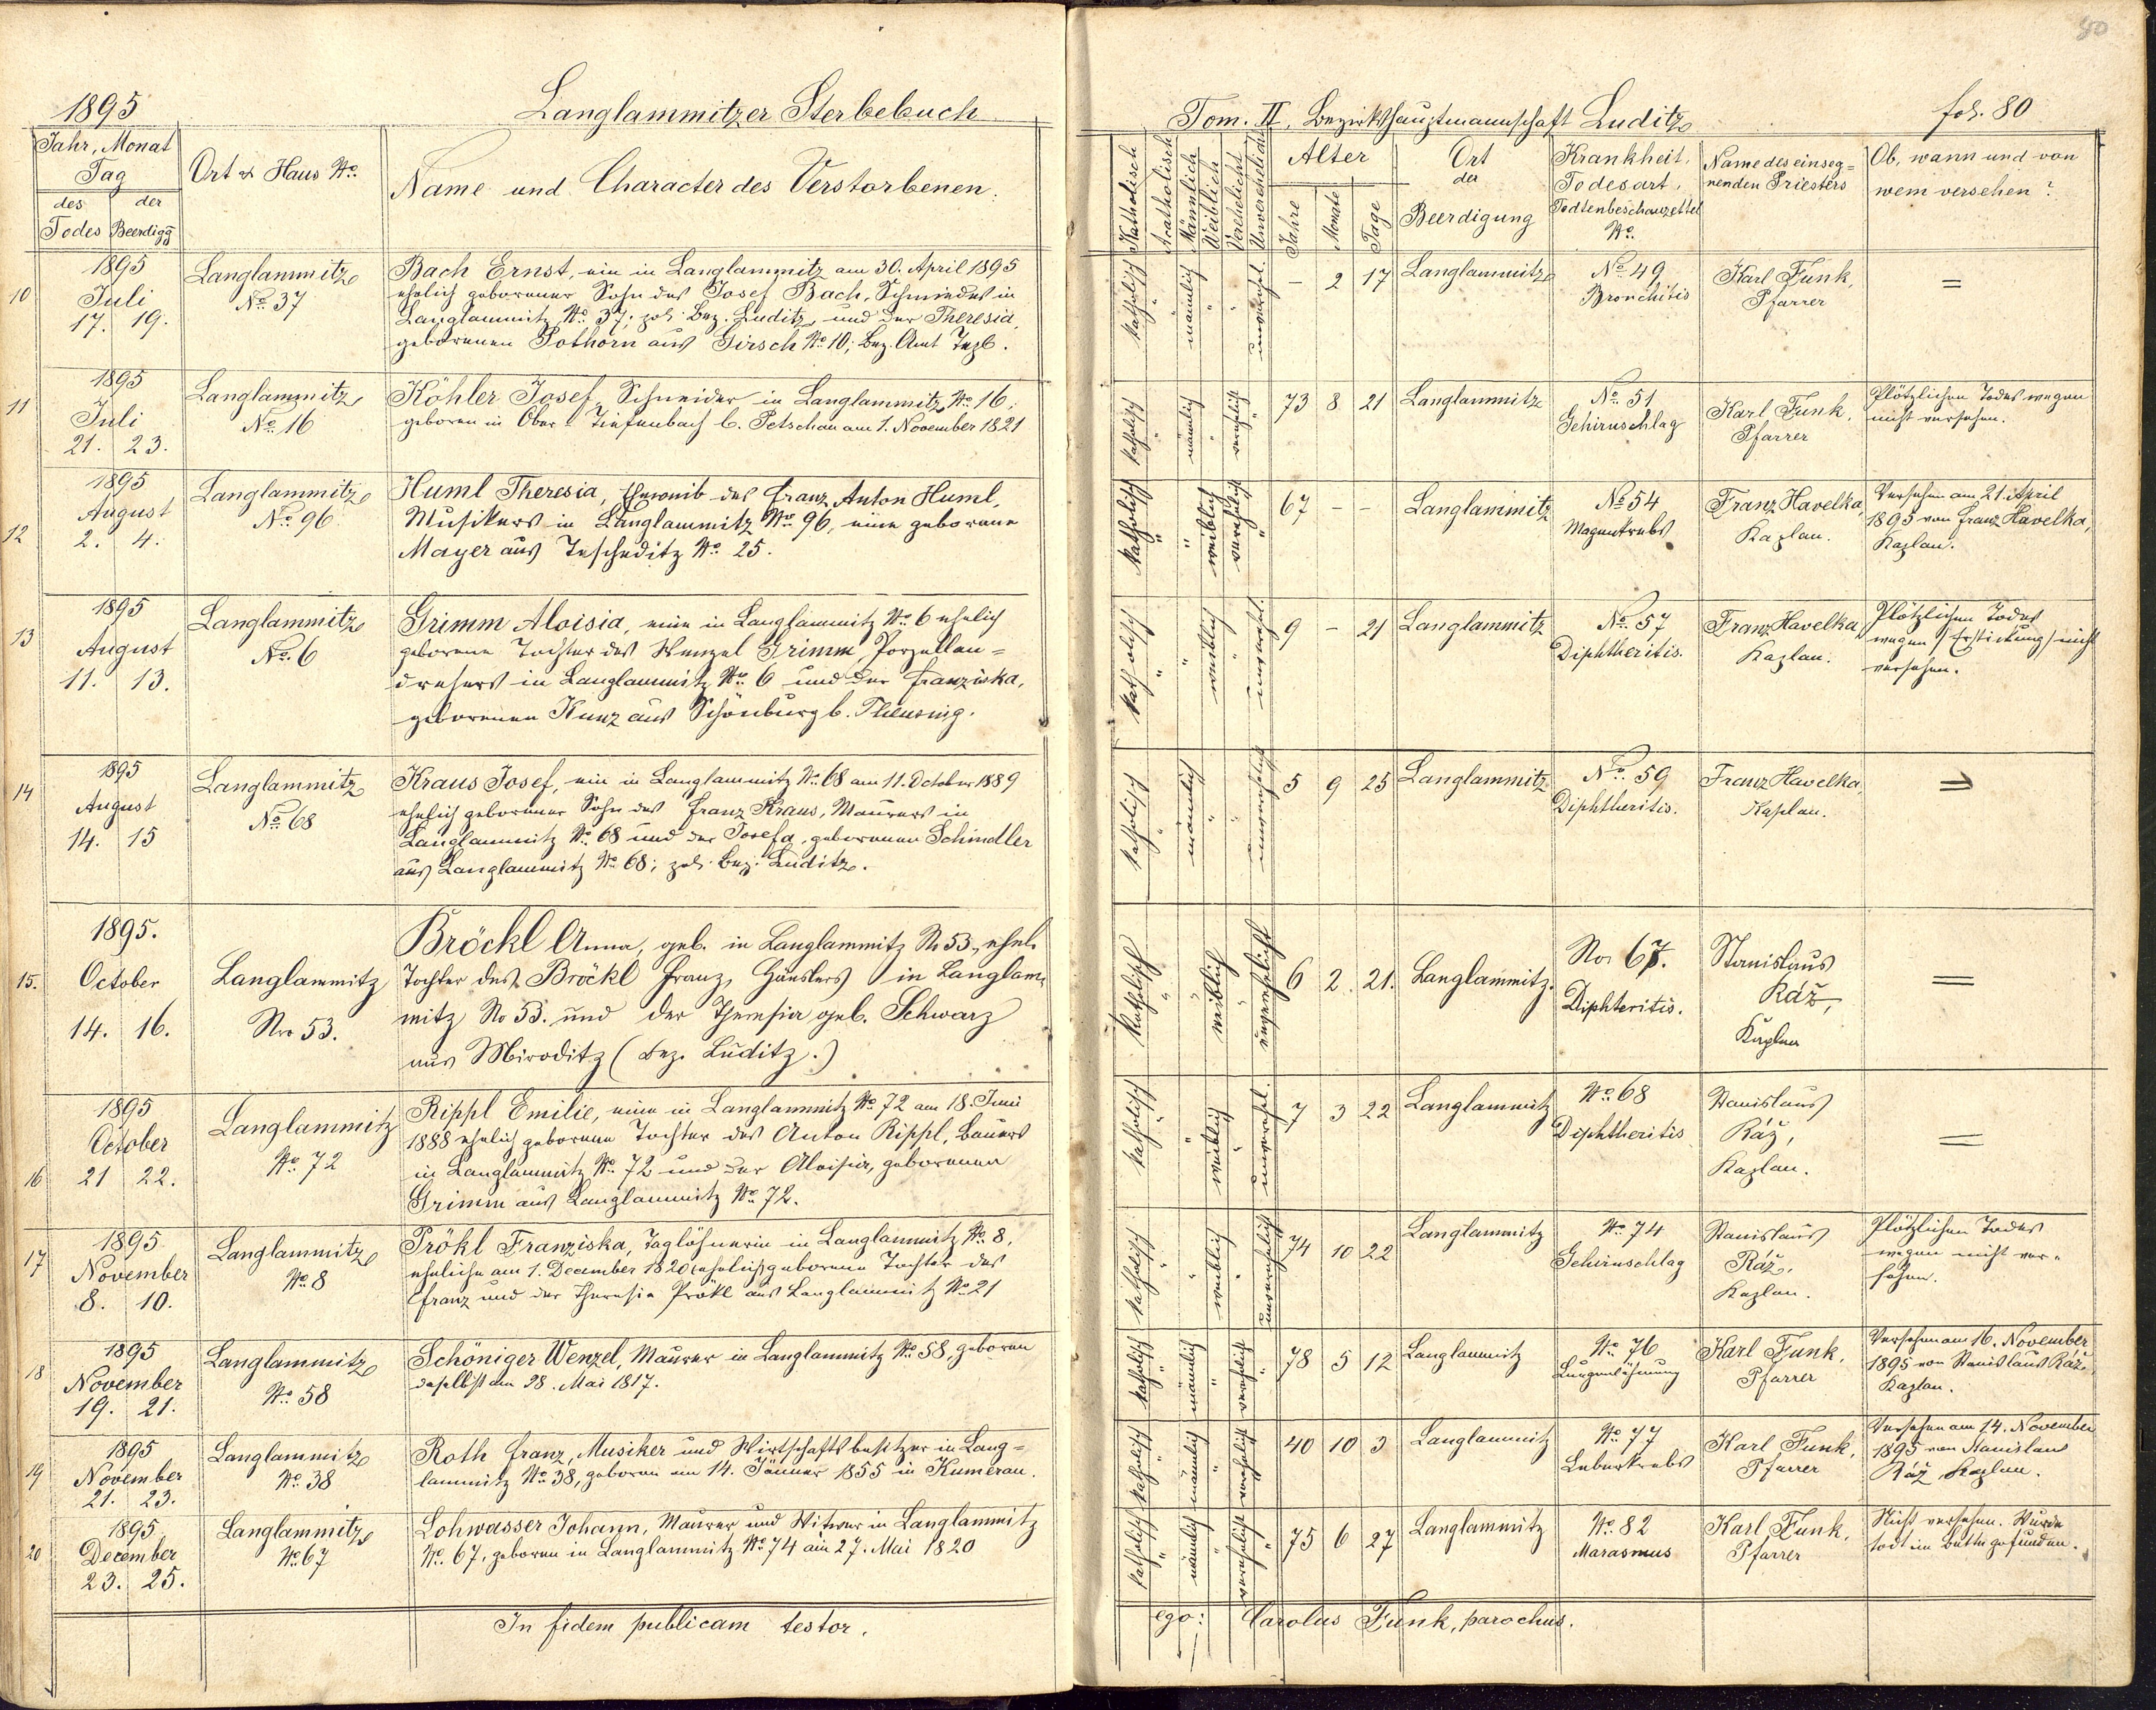 80
1895
Langlammitzer Sterbebuch
Tom. II, Bezirkshauptmannschaft Luditz
fol. 80
Jahr, Monat
Tag
des der
Todes Beerdigg
Ort & Haus No.
Name und Character des Verstorbenen:
Katholisch
Acatholisch
Männlich
Weiblich
Verehelicht
Unverehelicht
Alter
Jahre
Monate
Tage
Ort
der
Beerdigung
Krankheit,
Todesart,
Todtenbeschauzettel
No.
Name des einseg=
nenden Priesters
Ob, wann und von
wem versehen?
10
1895
Juli
17. 19.
Langlammitz
No. 37
Bach Ernst, ein in Langlammitz am 30. April 1895
ehelich geborener Sohn des Josef Bach, Schmiedes in
Langlammitz No. 37; pol. Bez. Luditz und der Theresia,
geborenen Pothorn aus Girsch No. 10; Bez. Amt Tepl.
katholisch " männlich " " unverehel.
– 2 17
Langlammitz
No. 49
Bronchitis
Karl Funk,
Pfarrer
=
11
1895
Juli
21. 23.
Langlammitz
No. 16
Köhler Josef, Schneider in Langlammitz No. 16,
geboren in Ober-Tiefenbach b. Petschau am 1. November 1821
katholisch " männlich " verehelicht "
73 8 21
Langlammitz
No. 51
Gehirnschlag
Karl Funk,
Pfarrer
Plötzlichen Todes wegen
nicht versehen.
12
1895
August
2. 4.
Langlammitz
No. 96
Huml Theresia, Eheweib des Franz Anton Huml,
Musikers in Langlammitz No. 96, eine geborene
Mayer aus Tescheditz No. 25.
katholisch " " weiblich verehelicht "
67 – –
Langlammitz
No. 54
Magenkrebs
Franz Havelka,
Kaplan.
Versehen am 21. April
1895 von Franz Havelka,
Kaplan.
13
1895
August
11. 13.
Langlammitz
No. 6
Grimm Aloisia, eine in Langlammitz No. 6 ehelich
geborene Tochter des Wenzel Grimm, Porzellan=
drehers in Langlammitz No. 6 und der Franziska,
geborenen Kunz aus Schönburg b. Theusing.
katholisch " " weiblich " unverehel.
9 – 21
Langlammitz
No. 57
Diphtheritis.
Franz Havelka
Kaplan.
Plötzlichen Todes
wegen (Erstickung) nicht
versehen.
14
1895
August
14. 15
Langlammitz
No. 68
Kraus Josef, ein in Langlammitz No. 68 am 11. October 1889
ehelich geborener Sohn des Franz Kraus, Maurers in
Langlammitz No. 68 und der Josefa, geborenen Schindler
aus Langlammitz No. 68; pol. Bez. Luditz.
katholisch " männlich " " unverehelicht
5 9 25
Langlammitz
No. 59
Diphtheritis.
Franz Havelka,
Kaplan.
=
15.
1895.
October
14. 16.
Langlammitz
Nro 53.
Bröckl Anna, geb. in Langlammitz No 53, ehel.
Tochter des Bröckl Franz, Häuslers in Langlam-
mitz No 53. und der Theresia geb. Schwarz
aus Miroditz (Bez. Luditz.)
katholisch " " weiblich " unverehelicht
6 2. 21.
Langlammitz.
No. 67.
Diphteritis.
Stanislaus
Ráž,
Kaplan
=
16
1895
October
21 22.
Langlammitz
No. 72
Rippl Emilie, eine in Langlammitz No. 72 am 18. Juni
1888 ehelich geborene Tochter des Anton Rippl, Bauers
in Langlammitz No. 72 und der Aloisia, geborenen
Grimm aus Langlammitz No. 72.
katholisch " " weiblich " unverehel.
7 3 22
Langlammitz
No. 68
Diphtheritis
Stanislaus
Ráž,
Kaplan.
=
17
1895
November
8. 10.
Langlammitz
No. 8
Prökl Franziska, Taglöhnerin in Langlammitz No. 8,
eheliche am 1. December 1820 ehelich geborene Tochter des
Franz und der Theresia Prökl aus Langlammitz No. 21
katholisch " " weiblich " unverehelicht
74 10 22
Langlammitz
No. 74
Gehirnschlag
Stanislaus
Ráž,
Kaplan.
Plötzlichen Todes
wegen nicht ver-
sehen.
18
1895
November
19. 21.
Langlammitz
No. 58
Schöniger Wenzel, Maurer in Langlammitz No. 58, geboren
daselbst am 28. Mai 1817.
katholisch " männlich " verehelicht "
78 5 12
Langlammitz
No. 76
Lungenlähmung
Karl Funk,
Pfarrer
Versehen am 16. November
1895 von Stanislaus Ráž,
Kaplan.
19
1895
November
21. 23.
Langlammitz
No. 38
Roth Franz, Musiker und Wirtschaftsbesitzer in Lang=
lammitz No. 38, geboren am 14. Jänner 1855 in Kumerau.
katholisch " männlich " verehelicht "
40 10 3
Langlammitz
No. 77
Leberkrebs
Karl Funk,
Pfarrer
Versehen am 14. November
1895 von Stanislaus
Ráž Kaplan.
20
1895
December
23. 25.
Langlammitz
No. 67
Lohwasser Johann, Maurer und Witwer in Langlammitz
No. 67, geboren in Langlammitz No. 74 am 27. Mai 1820
katholisch " männlich " verehelicht "
75 6 27
Langlammitz
No. 82
Marasmus
Karl Funk,
Pfarrer
Nicht versehen. Wurde
todt im Bette gefunden.
In fidem publicam testor,
ego: Carolus Funk, parochus.